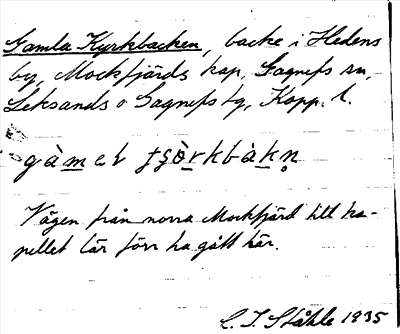 Gamla Kyrkbacken, backe i Hedens
by, Mockfjärds kap., Gagnefs sn,
Leksands o Gagnefs tg, Kopp. l.
Vägen från norra Mockfjärd till ka-
pellet lär förr ha gått här.
C. I. Ståhle 1935